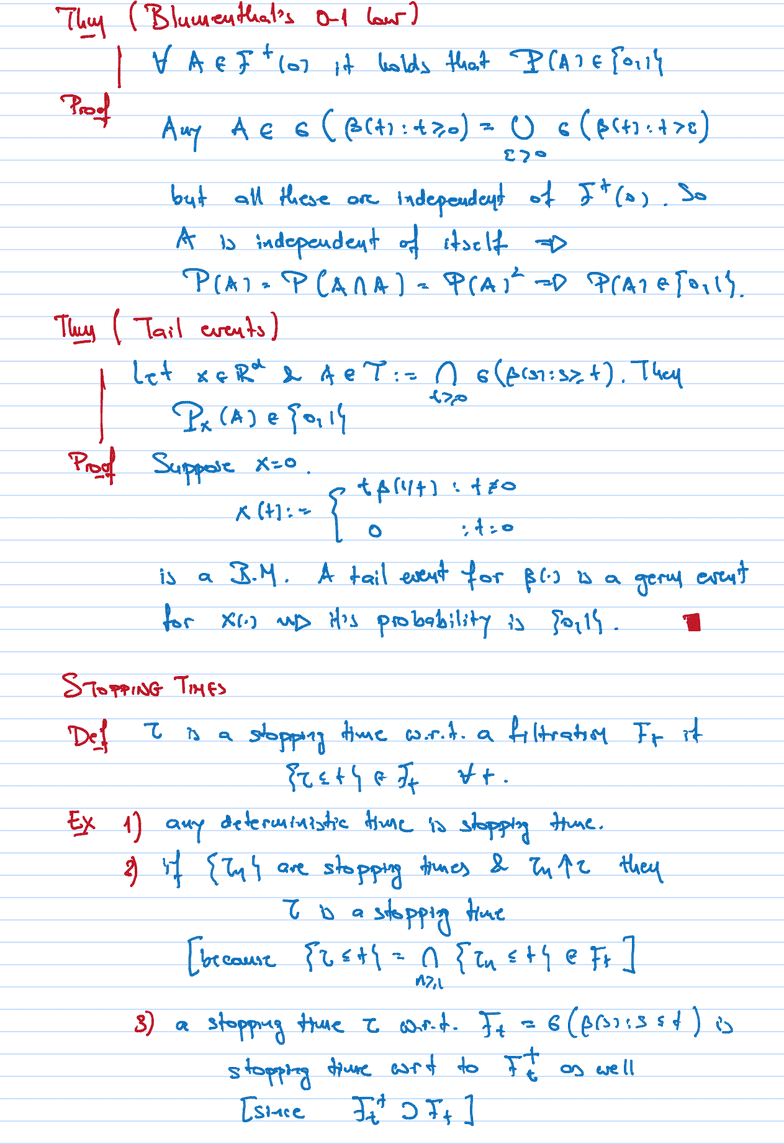 Thm (Blumenthal's 0-1 law)
∀ A ∈ F⁺(0) it holds that P(A) ∈ {0,1}
Proof
Any A ∈ σ(β(t) : t ≥ 0) = ∪_{ε>0} σ(β(t) : t > ε)
but all these are independent of F⁺(0). So
A is independent of itself ⇒
P(A) = P(A ∩ A) = P(A)² ⇒ P(A) ∈ {0,1}.
Thm (Tail events)
Let x ∈ ℝᵈ & A ∈ T := ∩_{t≥0} σ(β(s) : s ≥ t). Then
P_x(A) ∈ {0,1}
Proof Suppose x=0.
X(t) := { tβ(1/t) : t ≠ 0
0 : t=0
is a B.M. A tail event for β(·) is a germ event
for X(·) ⇝ it's probability is {0,1}.
STOPPING TIMES
Def τ is a stopping time w.r.t. a filtration F_t if
{τ ≤ t} ∈ F_t ∀ t.
Ex 1) any deterministic time is stopping time.
2) if {τ_n} are stopping times & τ_n ↑ τ then
τ is a stopping time
[because {τ ≤ t} = ∩_{n≥1} {τ_n ≤ t} ∈ F_t]
3) a stopping time τ w.r.t. F_t = σ(β(s) : s ≤ t) is
stopping time wrt to F_t⁺ as well
[since F_t⁺ ⊃ F_t]